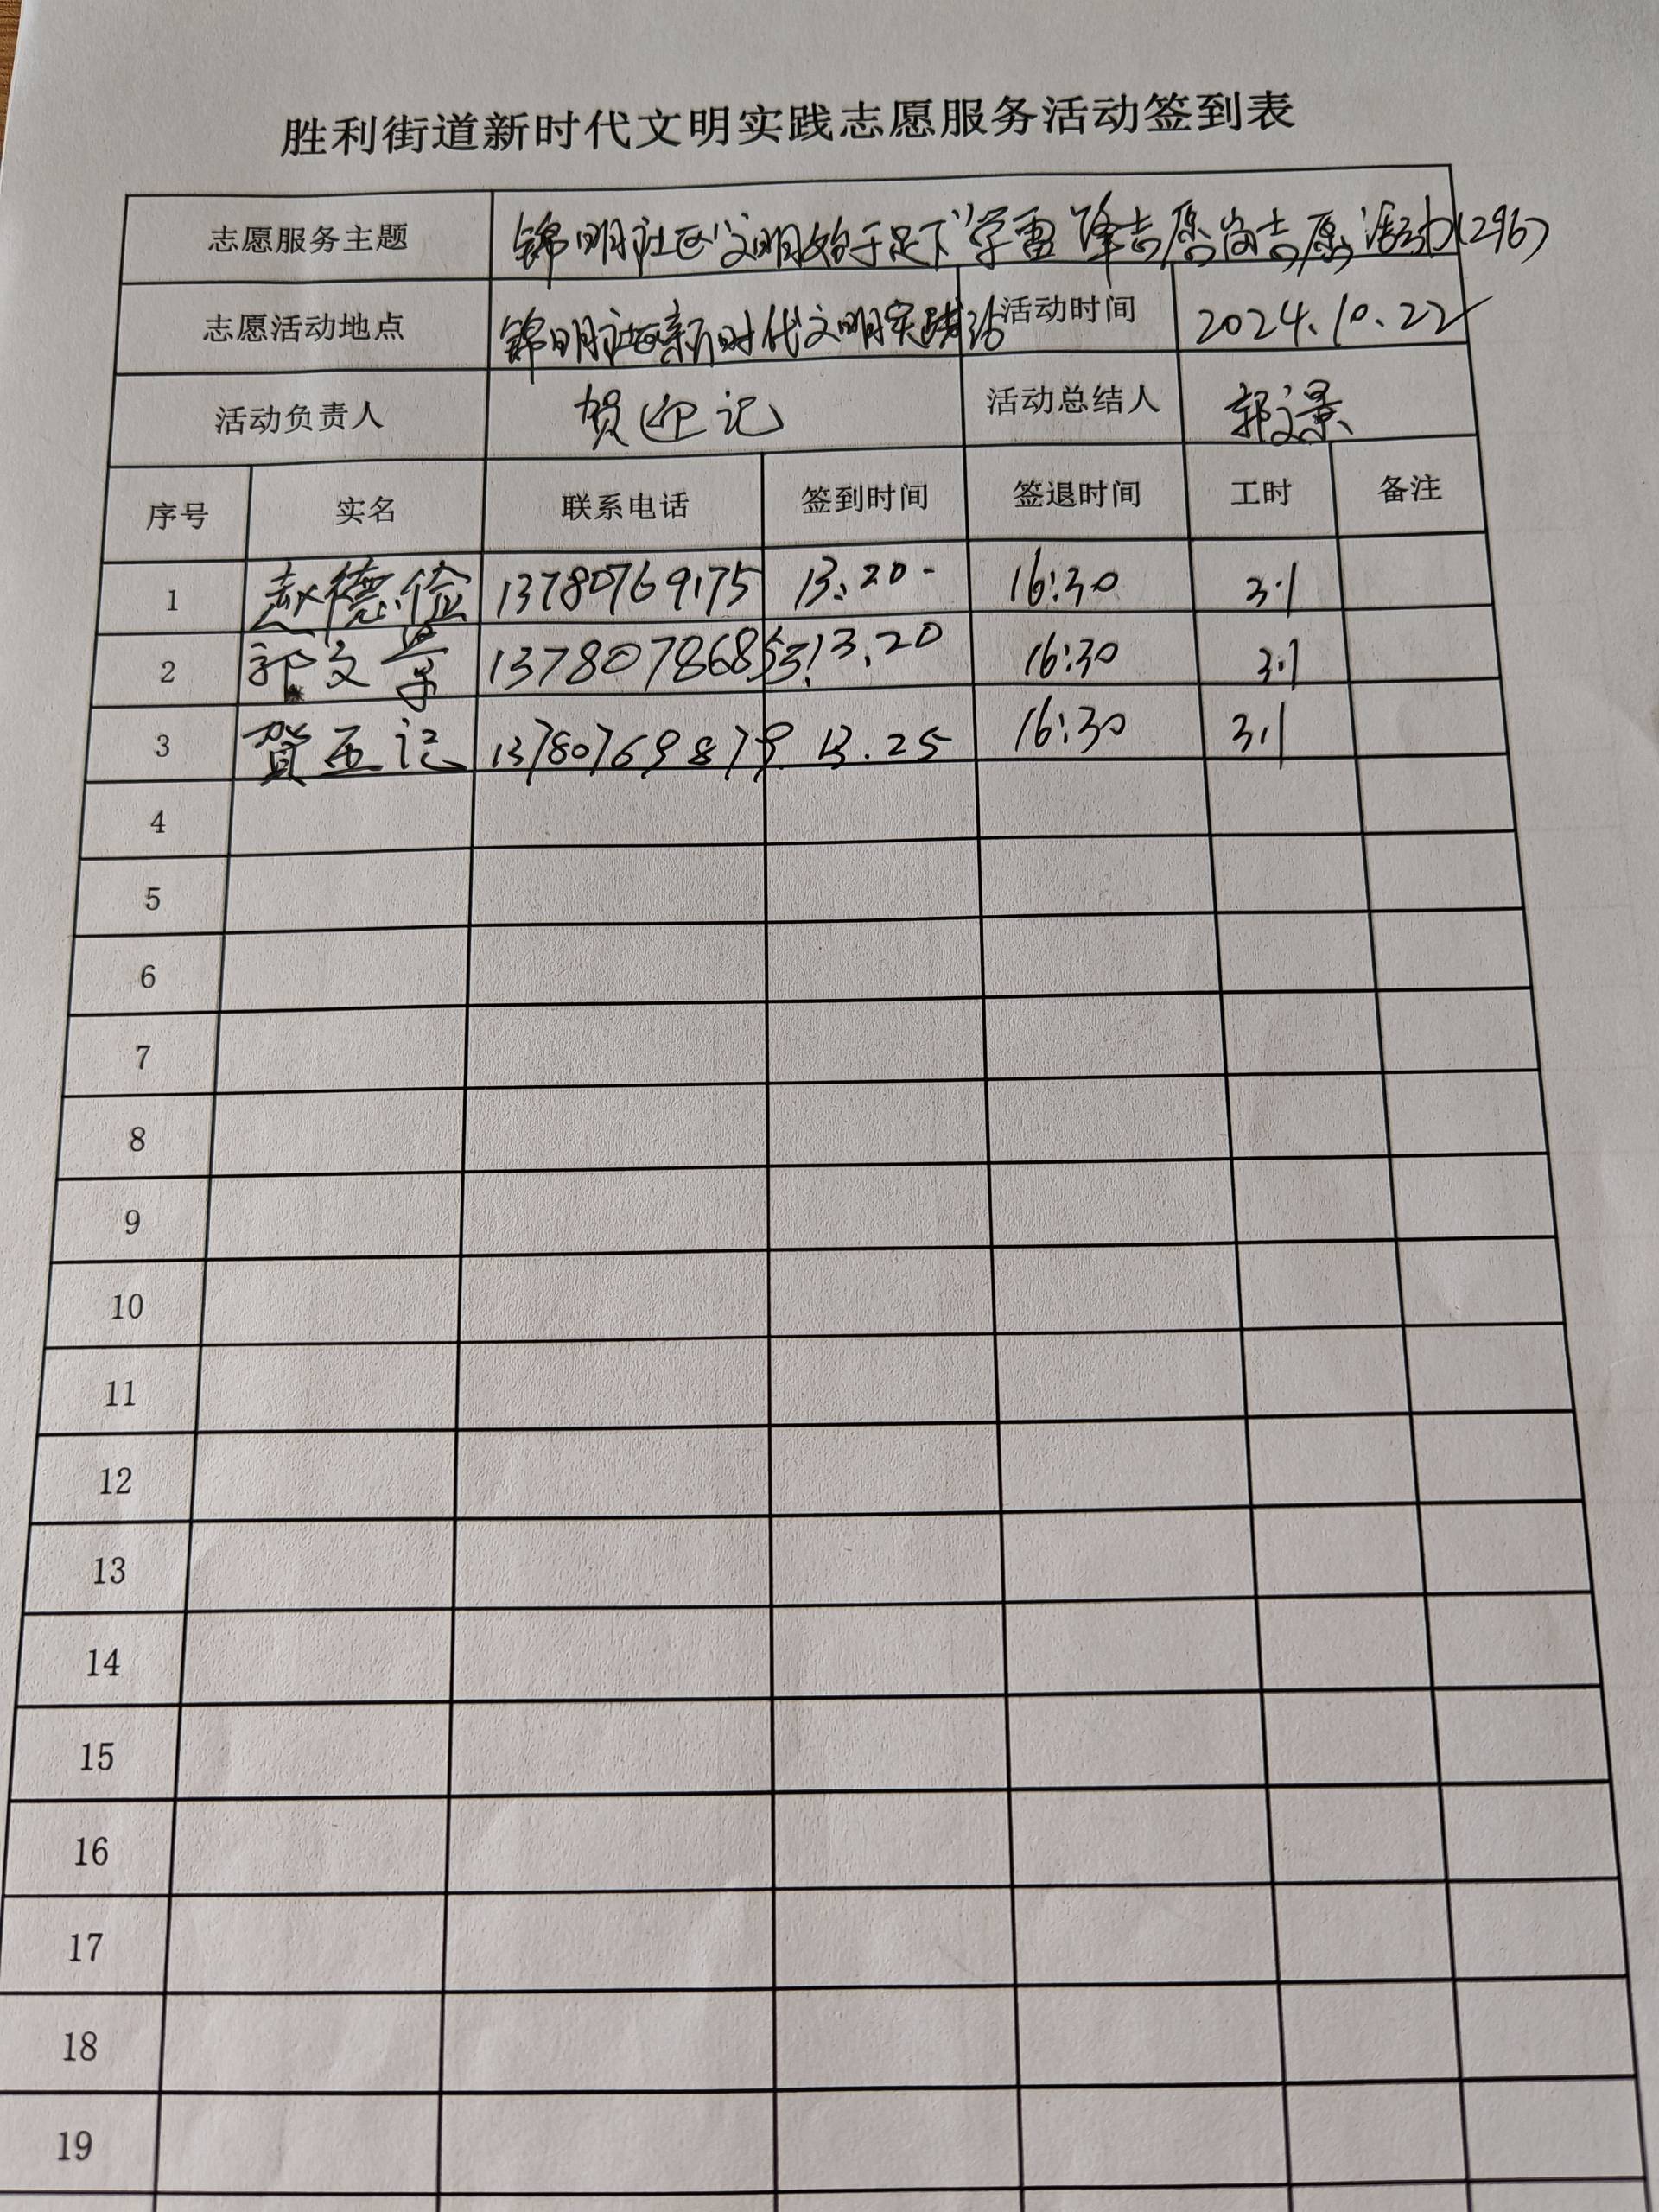 胜利街道新时代文明实践志愿服务活动签到表
志愿服务主题 锦明社区"文明始于足下"学雷锋志愿岗志愿活动(296)
志愿活动地点 锦明社区新时代文明实践站 活动时间 2024.10.22
活动负责人 贺迎记 活动总结人 郭文景
序号 实名 联系电话 签到时间 签退时间 工时 备注
1 赵德俭 13780769175 13.20 16:30 3.1
2 郭文景 13780786855 13.20 16:30 3.1
3 13780769879 13.25 16:30 3.1
4
5
6
7
8
9
10
11
12
13
14
15
16
17
18
19